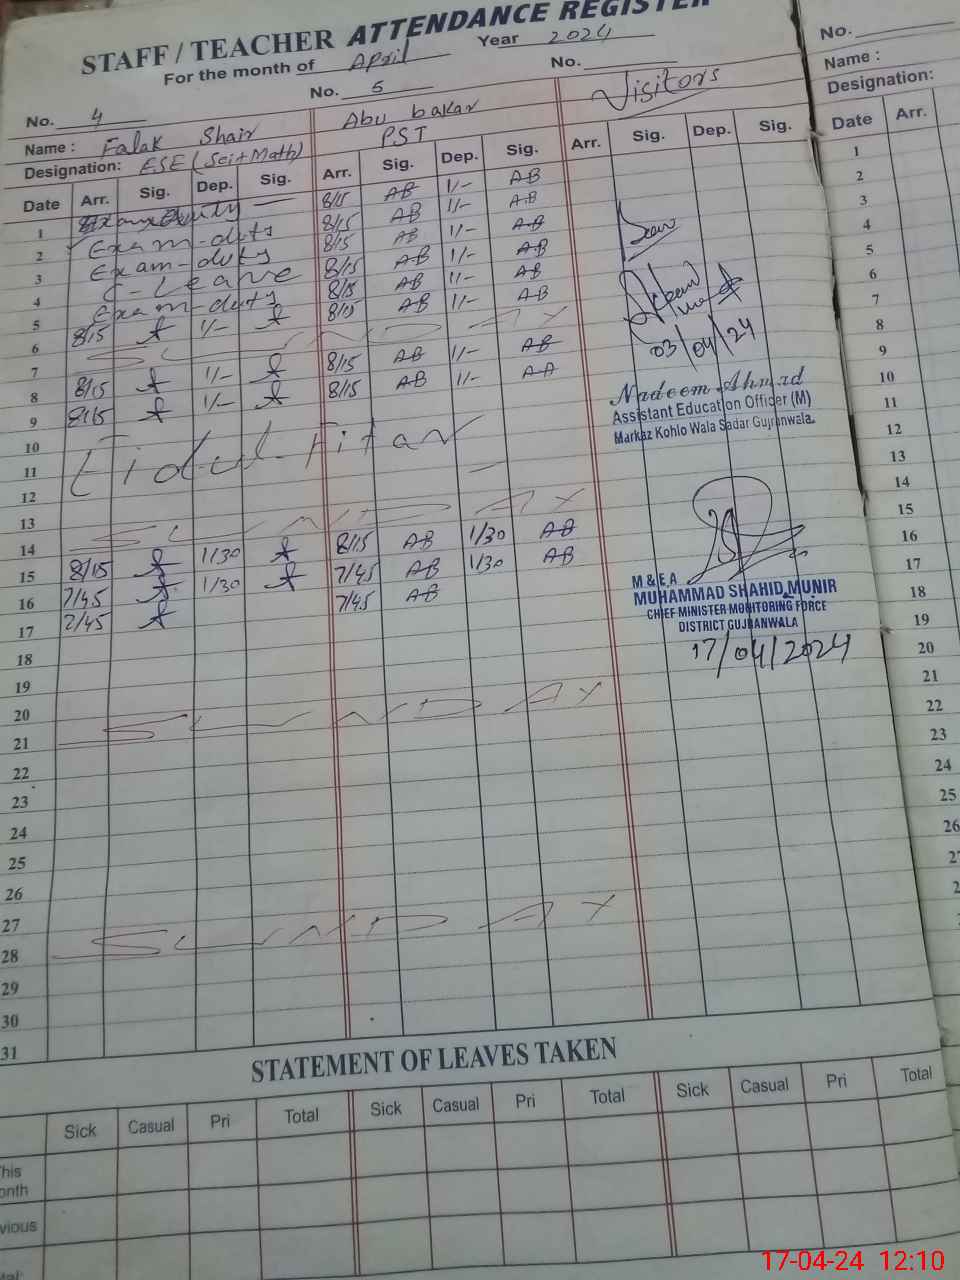 STAFF / TEACHER ATTENDANCE REGISTER
For the month of April Year 2024
No. 4 No. 5 No.
Name : Falak Shair Abu bakar Visitors
Designation: ESE (Sci+Math) PST
Date Arr. Sig. Dep. Sig. Arr. Sig. Dep. Sig. Arr. Sig. Dep. Sig.
1 Exam Duty 8/15 AB 1/- AB
2 Exam-duty 8/15 AB 1/- AB
3 Exam-duty 8/15 AB 1/- AB
4 C-Leave 8/15 AB 1/- AB
5 Exam-duty 8/15 AB 1/- AB
6 8/15 1/- 8/15 AB 1/- AB
7 SUNDAY
8 8/15 1/- 8/15 AB 1/- AB
9 8/15 1/- 8/15 AB 1/- AB
10
11 Eid-ul-Fitar
12
13
14 SUNDAY
15 8/15 1/30 8/15 AB 1/30 AB
16 7/45 1/30 7/45 AB 1/30 AB
17 7/45 7/45 AB
18
19
20
21 SUNDAY
22
23
24
25
26
27
28 SUNDAY
29
30
31
03/04/24
Nadeem Ahmad
Assistant Education Officer (M)
Markaz Kohlo Wala Sadar Gujranwala.
M & E A
MUHAMMAD SHAHID MUNIR
CHIEF MINISTER MONITORING FORCE
DISTRICT GUJRANWALA
17/04/2024
STATEMENT OF LEAVES TAKEN
Sick Casual Pri Total Sick Casual Pri Total Sick Casual Pri Total
This
onth
vious
No.
Name :
Designation:
Date Arr.
1
2
3
4
5
6
7
8
9
10
11
12
13
14
15
16
17
18
19
20
21
22
23
24
25
26
17-04-24 12:10